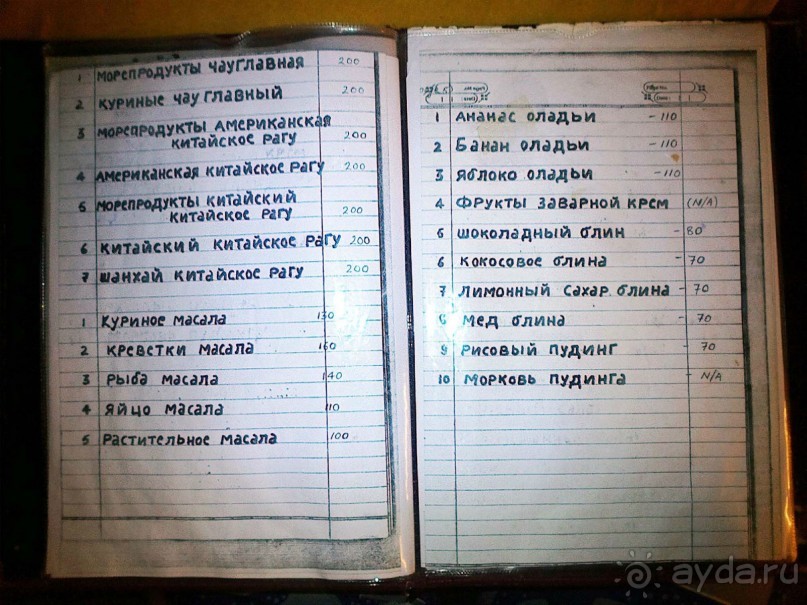 1 МОРЕПРОДУКТЫ ЧАУГЛАВНАЯ 200
2 КУРИНЫЕ ЧАУ ГЛАВНЫЙ 200
3 МОРЕПРОДУКТЫ АМЕРИКАНСКАЯ
КИТАЙСКОЕ РАГУ 200
4 АМЕРИКАНСКАЯ КИТАЙСКОЕ РАГУ 200
5 МОРЕПРОДУКТЫ КИТАЙСКИЙ
КИТАЙСКОЕ РАГУ 200
6 КИТАЙСКИЙ КИТАЙСКОЕ РАГУ 200
7 ШАНХАЙ КИТАЙСКОЕ РАГУ 200
1 КУРИНОЕ МАСАЛА 130
2 КРЕВЕТКИ МАСАЛА 160
3 РЫБА МАСАЛА 140
4 ЯЙЦО МАСАЛА 110
5 РАСТИТЕЛЬНОЕ МАСАЛА 100
1 АНАНАС ОЛАДЬИ - 110
2 БАНАН ОЛАДЬИ - 110
3 ЯБЛОКО ОЛАДЬИ - 110
4 ФРУКТЫ ЗАВАРНОЙ КРЕМ (N/A)
5 ШОКОЛАДНЫЙ БЛИН - 80
6 КОКОСОВОЕ БЛИНА - 70
7 ЛИМОННЫЙ САХАР. БЛИНА - 70
8 МЕД БЛИНА - 70
9 РИСОВЫЙ ПУДИНГ - 70
10 МОРКОВЬ ПУДИНГА - N/A
ayda.ru